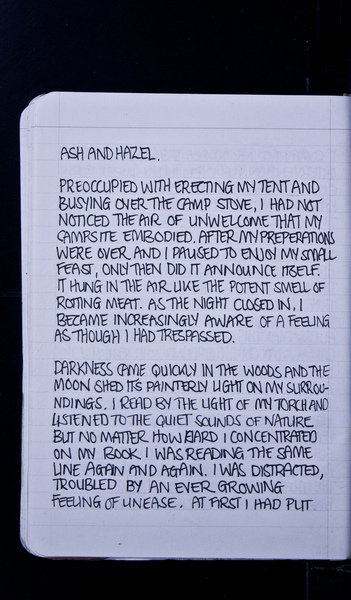 ASH AND HAZEL.
PREOCCUPIED WITH ERECTING MY TENT AND
BUSYING OVER THE CAMP STOVE, I HAD NOT
NOTICED THE AIR OF UNWELCOME THAT MY
CAMPSITE EMBODIED. AFTER MY PREPERATIONS
WERE OVER AND I PAUSED TO ENJOY MY SMALL
FEAST, ONLY THEN DID IT ANNOUNCE ITSELF.
IT HUNG IN THE AIR LIKE THE POTENT SMELL OF
ROTTING MEAT. AS THE NIGHT CLOSED IN, I
BECAME INCREASINGLY AWARE OF A FEELING
AS THOUGH I HAD TRESPASSED.
DARKNESS CAME QUICKLY IN THE WOODS AND THE
MOON SHED ITS PAINTERLY LIGHT ON MY SURROU-
NDINGS. I READ BY THE LIGHT OF MY TORCH AND
LISTENED TO THE QUIET SOUNDS OF NATURE.
BUT NO MATTER HOW HARD I CONCENTRATED
ON MY BOOK I WAS READING THE SAME
LINE AGAIN AND AGAIN. I WAS DISTRACTED,
TROUBLED BY AN EVER GROWING
FEELING OF UNEASE. AT FIRST I HAD PUT